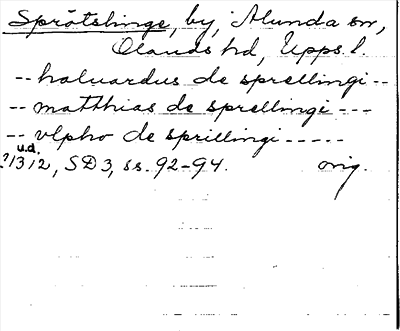 Sprätslinge, by, Alunda sn,
Olands hd, Upps.l.
-- haluardus de sprellingi --
-- matthias de sprellingi ---
-- vlpho de sprillingi -----
u.d.
?1312, SD3, ss. 92-94. orig.